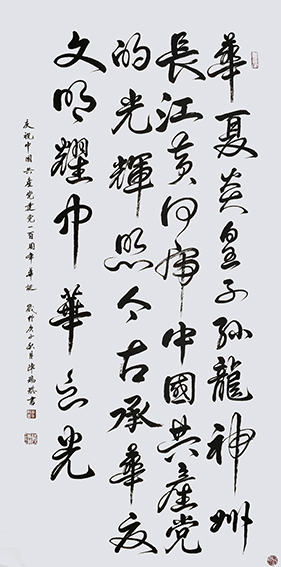 華夏炎皇子孙龍神州
長江黄河中國共産党
的光輝照今古承華夏
文明耀中華之光
庆祝中國共產党建党一百周年華诞 歲於庚子秋月書